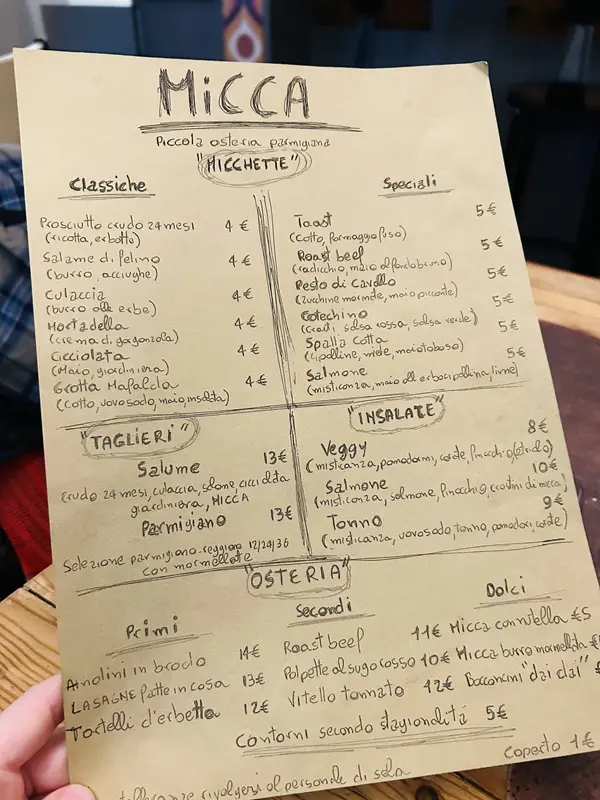 MiCCA
Piccola osteria parmigiana
"MICCHETTE"
Classiche
Prosciutto crudo 24 mesi 4 €
(ricotta, erbette)
Salame di felino 4 €
(burro, acciughe)
Culaccia 4 €
(burro alle erbe)
Mortadella 4 €
(crema di gorgonzola)
Cicciolata 4 €
(Maio, giardiniera)
Grotta Mafalda 4 €
(cotto, uovo sodo, maio, insalata)
Speciali
Toast 5 €
(cotto, formaggio fuso)
Roast beef 5 €
(radicchio, maio al fondo bruno)
Pesto di cavallo 5 €
(zucchine marinate, maio piccante)
Cotechino 5 €
(crauti, salsa rossa, salsa verde)
Spalla cotta 5 €
(cipolline, miele, maio tobaso)
Salmone 5 €
(misticanza, maio alle erbe cipollina, lime)
"TAGLIERI"
Salume 13 €
crudo 24 mesi, culaccia, salame, cicciolata
giardiniera, MICCA
Parmigiano 13 €
Selezione parmigiano-reggiano 12/24/36
con marmellate
"INSALATE"
Veggy 8 €
(misticanza, pomodorini, carote, finocchio, cetriolo)
Salmone 10 €
(misticanza, salmone, finocchio, crostini di micca)
Tonno 9 €
(misticanza, uovo sodo, tonno, pomodori, carote)
"OSTERIA"
Primi
Anolini in brodo 14€
LASAGNE fatte in casa 13€
Tortelli d'erbetta 12€
Secondi
Roast beef 11€
Polpette al sugo rosso 10€
Vitello tonnato 12€
Dolci
Micca con nutella €5
Micca burro marmellata €
Bocconcini "dai dai" €
Contorni secondo stagionalità 5€
Coperto 1 €
rivolgersi al personale di sala